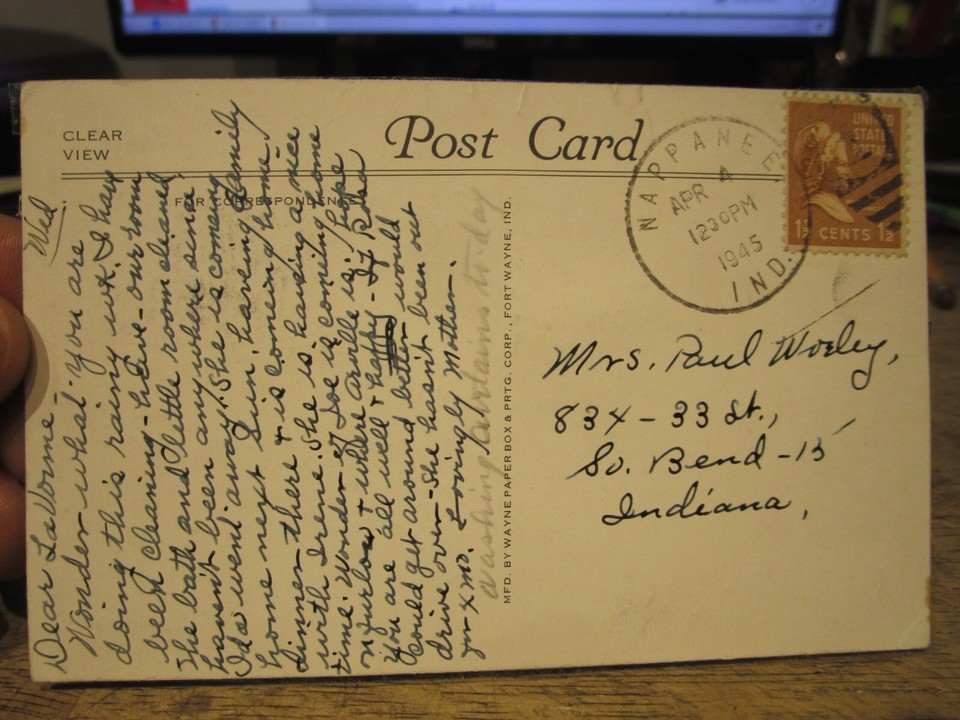 CLEAR
VIEW
Post Card
FOR CORRESPONDENCE
NAPPANEE
APR 4
1230PM
1945
IND.
UNITED
STATES
POSTAGE
1½ CENTS 1½
Wed.
Dear LaVorne -
Wonder what you are
doing this rainy wk. I have
been cleaning - have our room
the bath and little room cleaned
haven't been any where since
Ida went away. She is coming
home next Sun. having family
dinner there & is coming home
with Irene. She is having a nice
time. Wonder if Joe is coming home
on furlow & where Arville is. Hope
you are all well & happy - If
could get around better would
drive over - She hasn't been out
for x mo. Lovingly Mother.
washing curtains to-day
MFD. BY WAYNE PAPER BOX & PRTG. CORP., FORT WAYNE, IND.
Mrs. Paul Worley,
834 - 33 St.,
So. Bend - 15
Indiana,